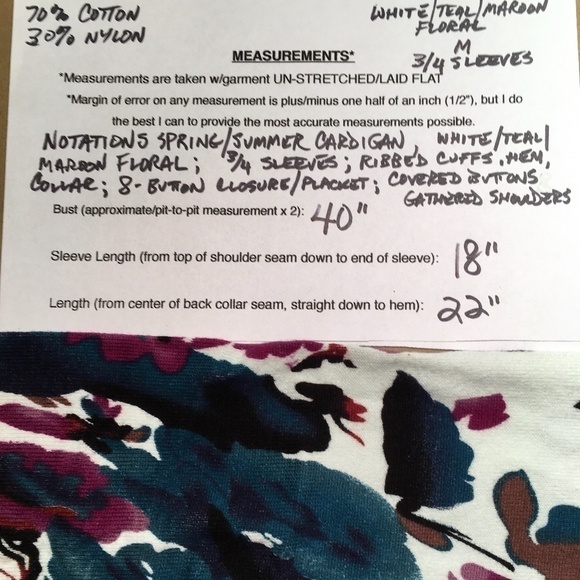 70% COTTON
30% NYLON
WHITE/TEAL/MAROON
FLORAL
M
3/4 SLEEVES
MEASUREMENTS*
*Measurements are taken w/garment UN-STRETCHED/LAID FLAT
*Margin of error on any measurement is plus/minus one half of an inch (1/2"), but I do
the best I can to provide the most accurate measurements possible.
NOTATIONS SPRING/SUMMER CARDIGAN, WHITE/TEAL/
MAROON FLORAL; 3/4 SLEEVES; RIBBED CUFFS, HEM,
COLLAR; 8-BUTTON CLOSURE/PLACKET; COVERED BUTTONS
GATHERED SHOULDERS
Bust (approximate/pit-to-pit measurement x 2): 40"
Sleeve Length (from top of shoulder seam down to end of sleeve): 18"
Length (from center of back collar seam, straight down to hem): 22"